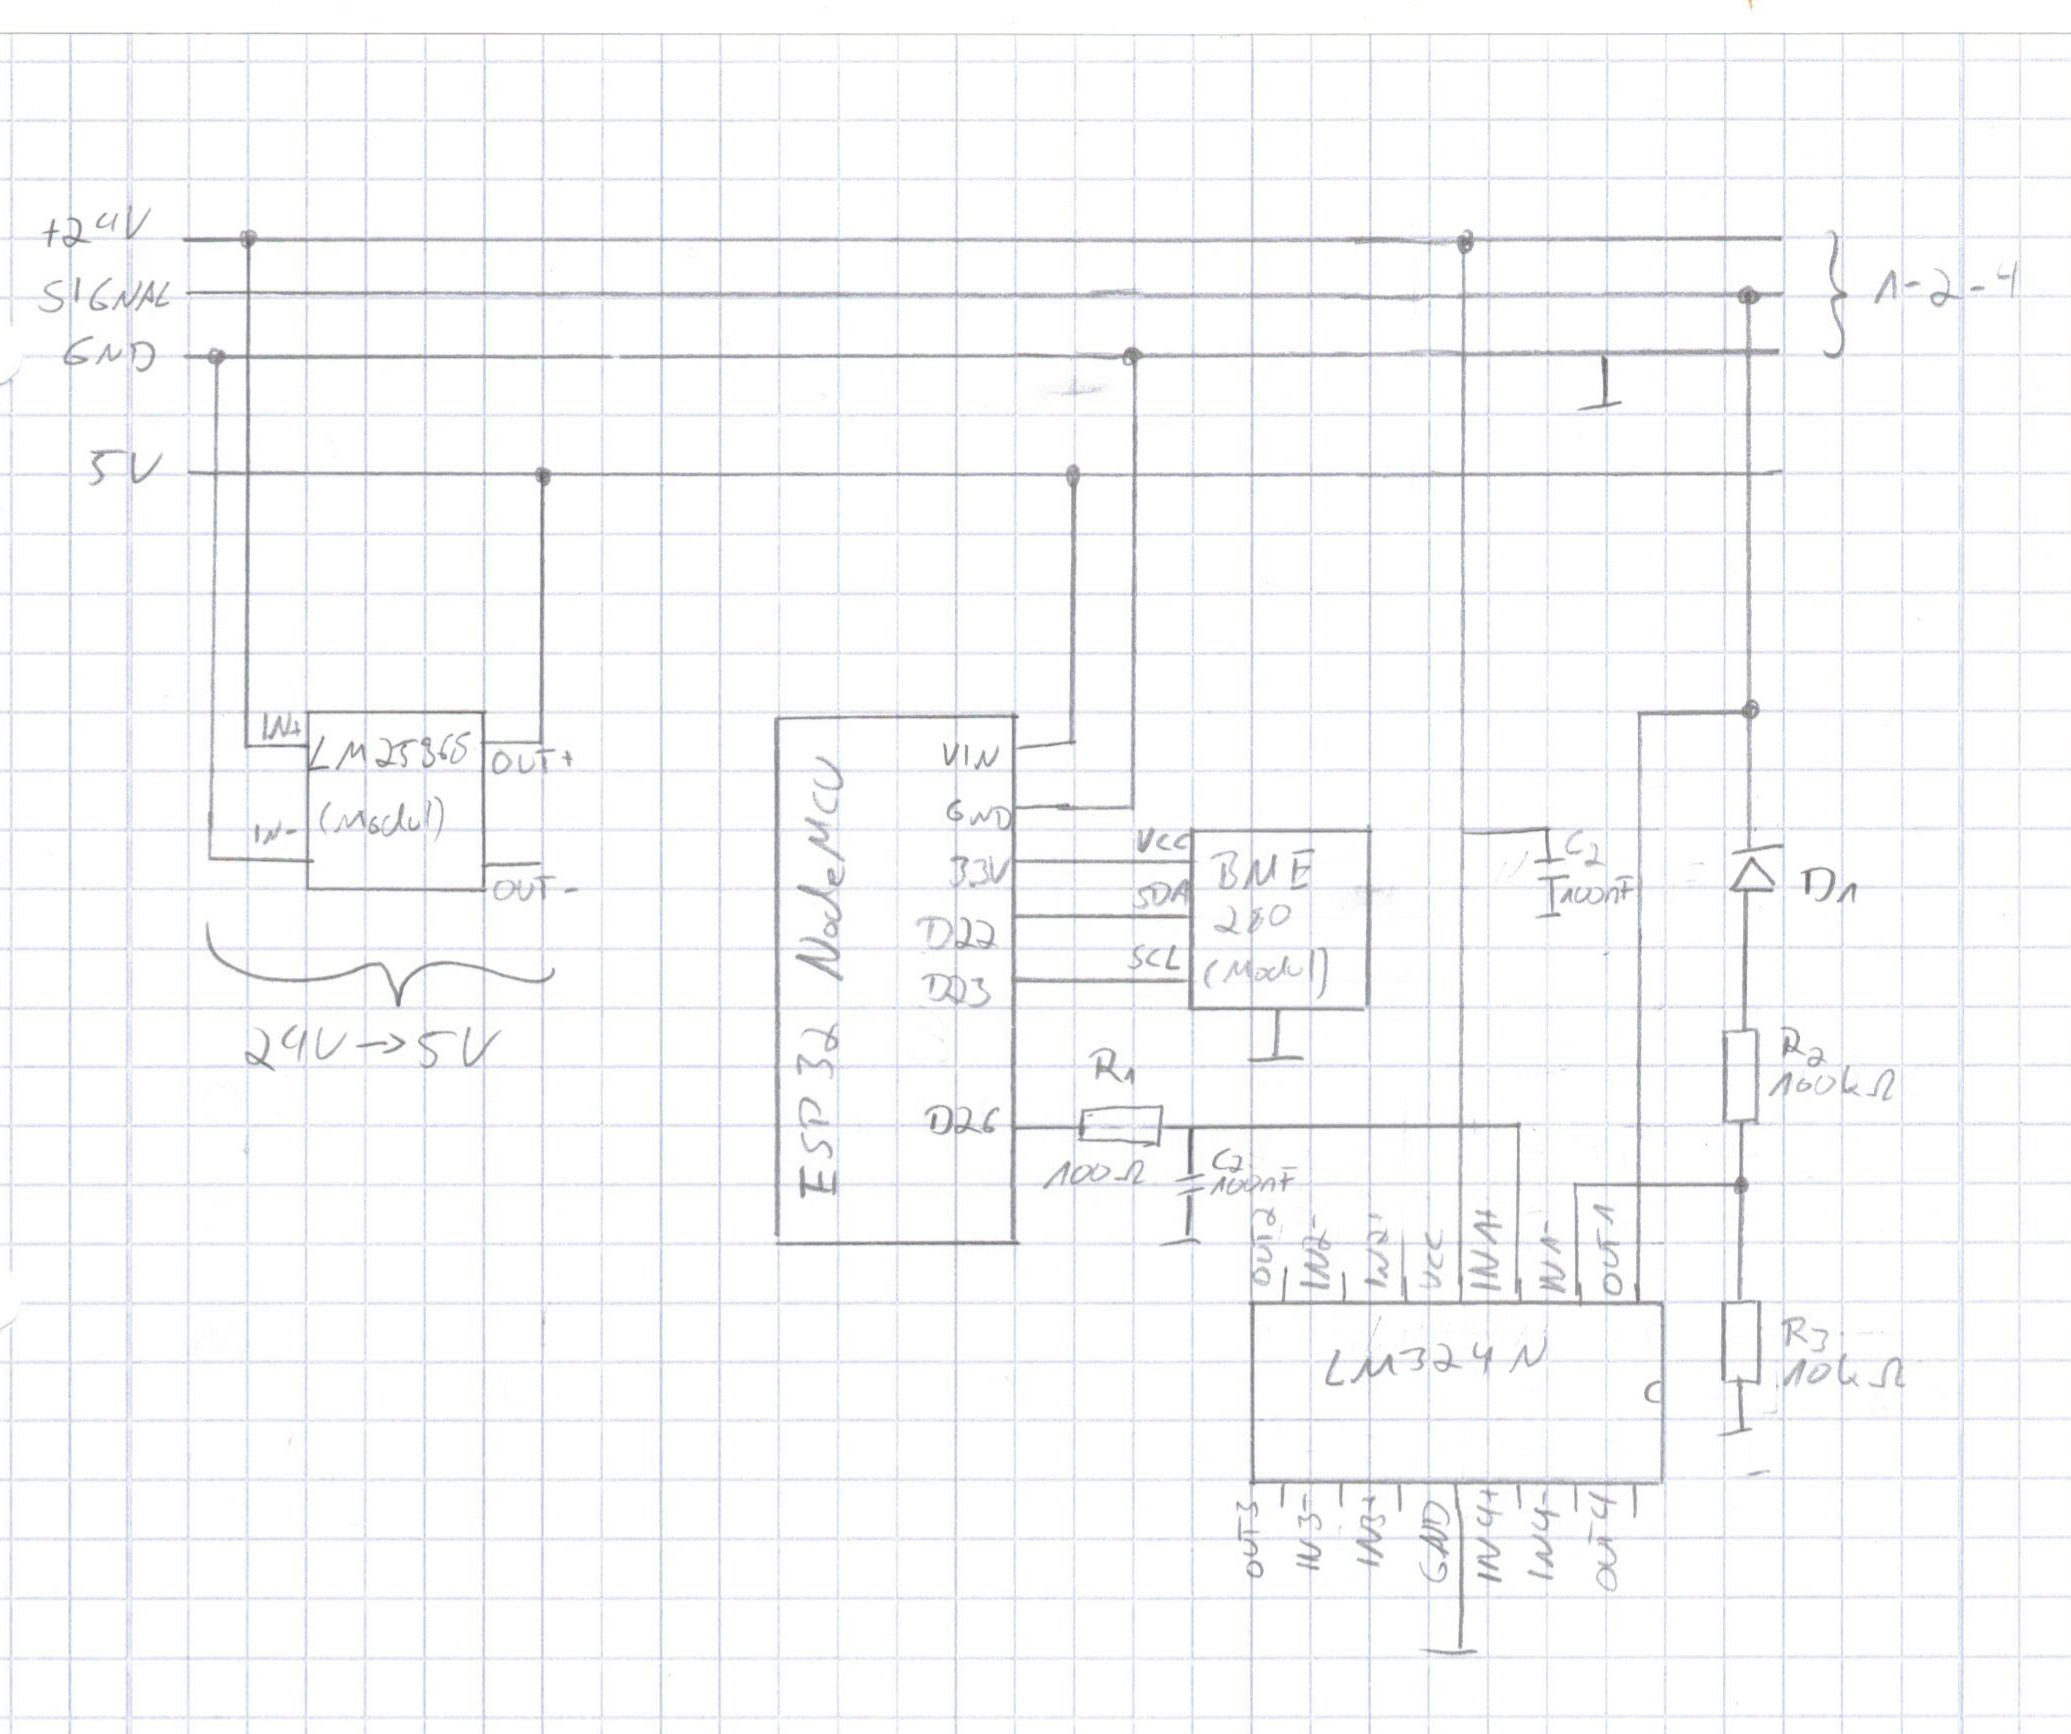 +24V
SIGNAL
GND
5V
1-2-4
IN+
LM2596S
(Modul)
IN-
OUT+
OUT-
24V→5V
ESP32 NodeMCU
VIN
GND
33V
D22
D23
D26
VCC
SDA
SCL
BME
280
(Modul)
R1
100Ω
C2
100nF
C2
100nF
D1
R2
100kΩ
R3
10kΩ
OUT2
IN2-
IN2+
VCC
IN1+
IN1-
OUT1
LM324N
OUT3
IN3-
IN3+
GND
IN4+
IN4-
OUT4